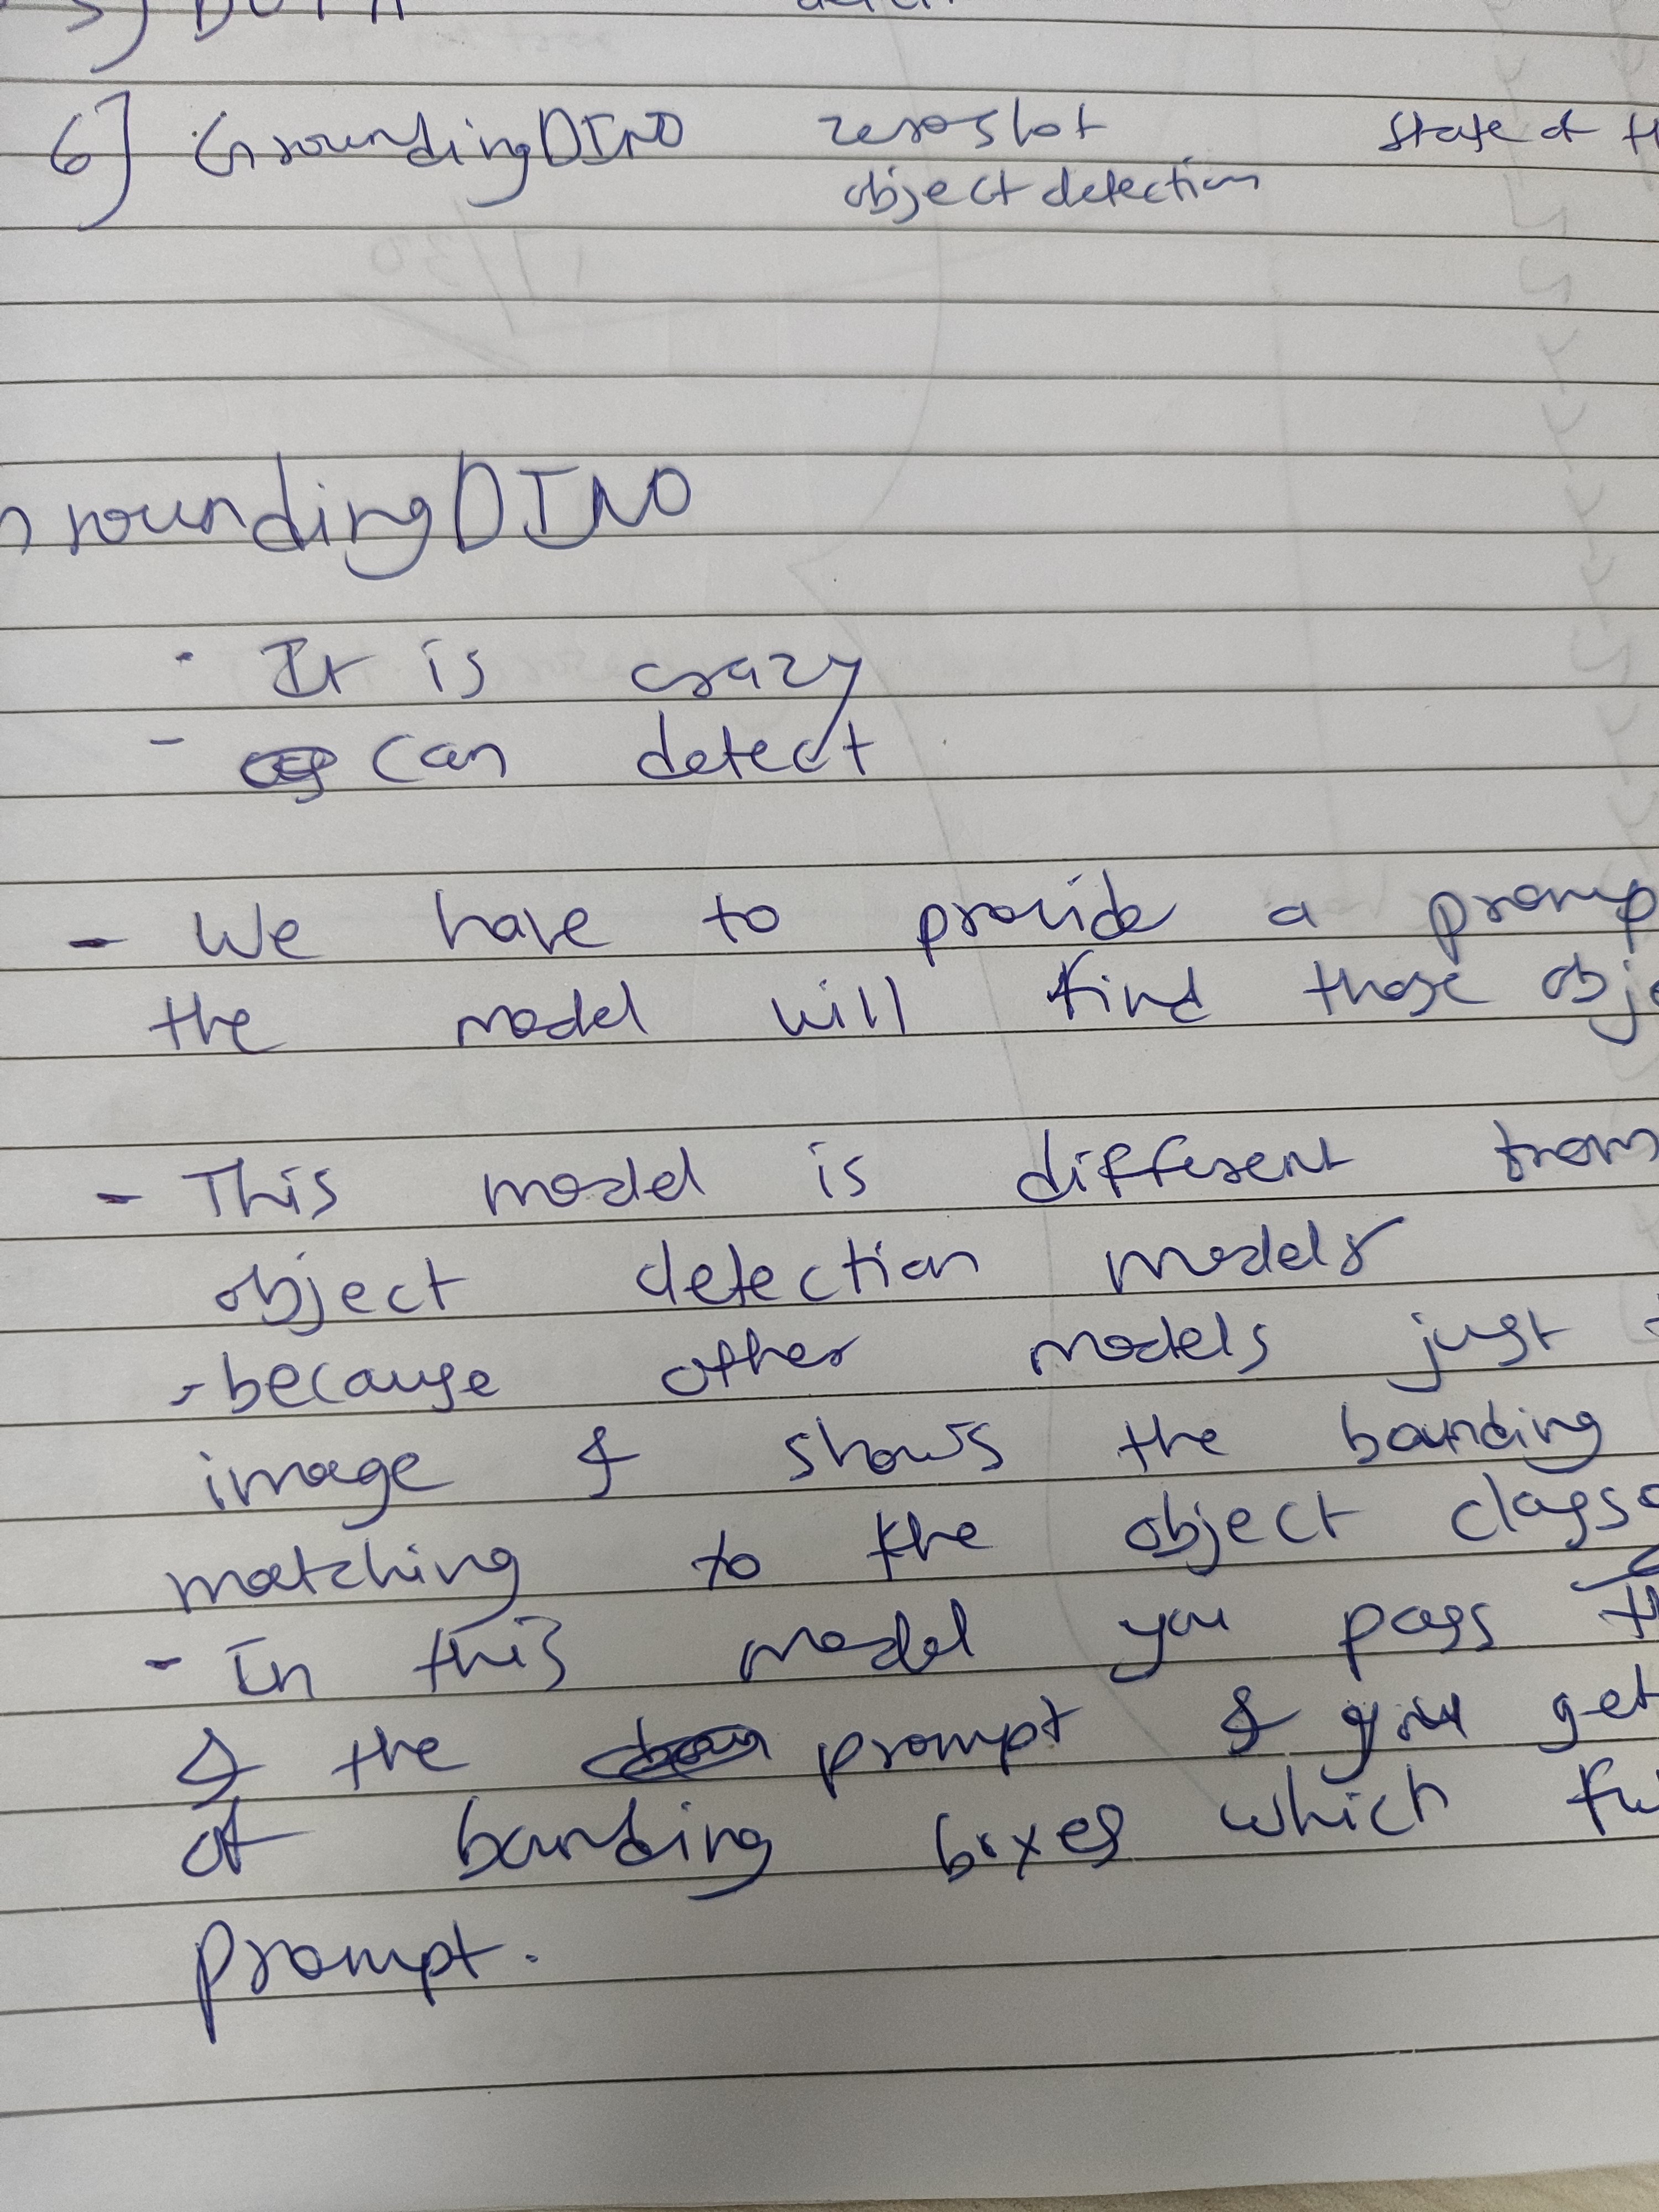 6] GroundingDINO zeroshot State of
object detection
roundingDINO
- It is crazy
- can detect
- We have to provide a promp
the model will find those obje
- This model is different from
object detection models
- because other models just
image & shows the bounding
matching to the object class
- In this model you pass
& the prompt & you get
of bounding boxes which
prompt.